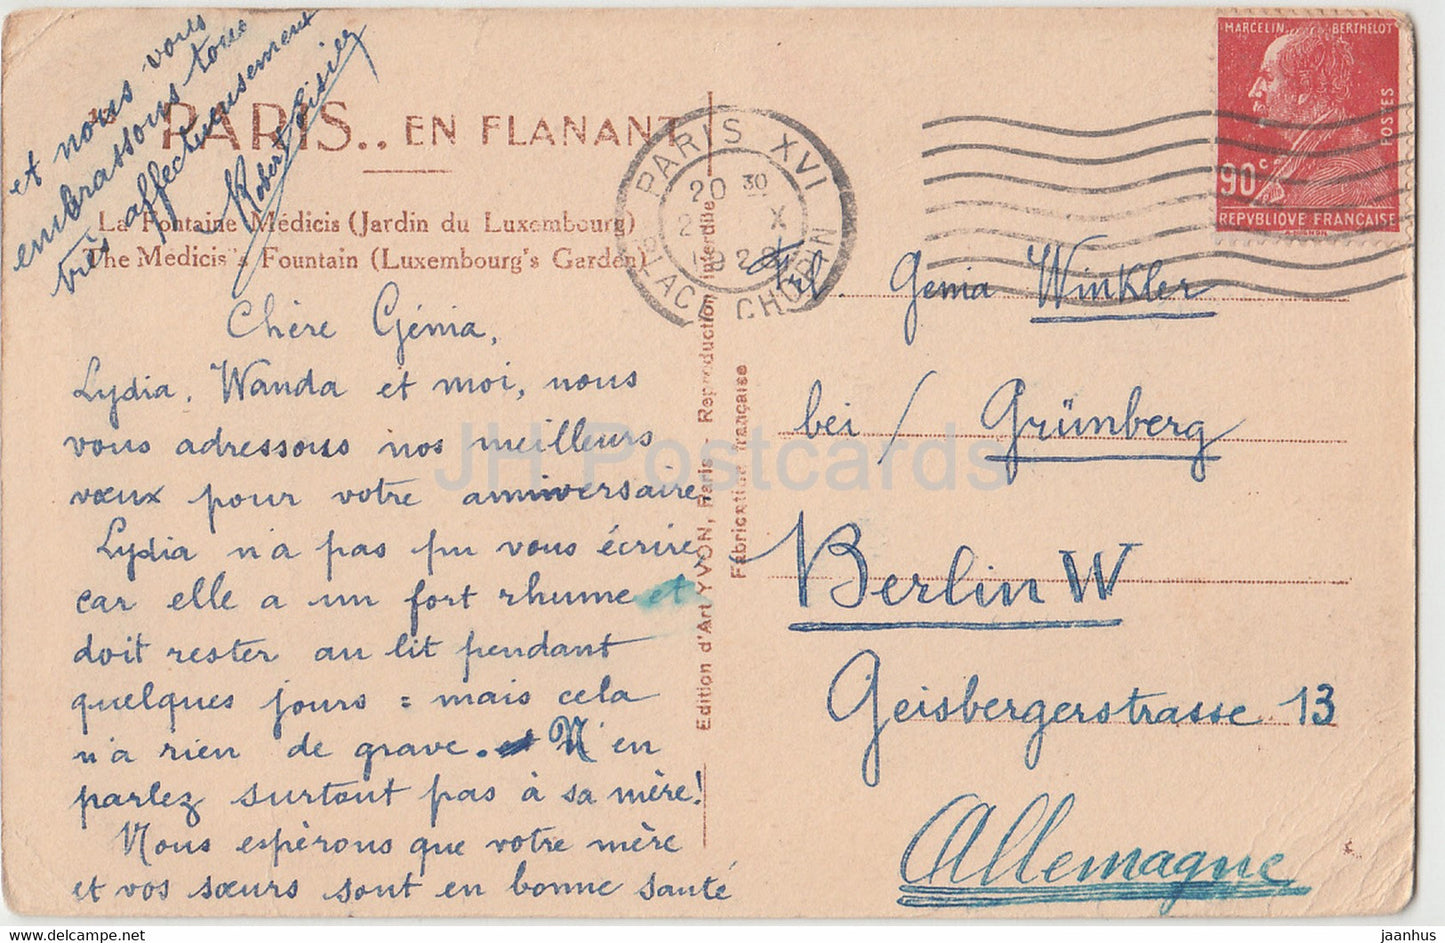 PARIS.. EN FLANANT
La Fontaine Médicis (Jardin du Luxembourg)
The Medicis's Fountain (Luxembourg's Garden)
Chère Génia,
Lydia, Wanda et moi, nous
vous adressons nos meilleurs
vœux pour votre anniversaire.
Lydia n'a pas pu vous écrire,
car elle a un fort rhume et
doit rester au lit pendant
quelques jours = mais cela
n'a rien de grave. N'en
parlez surtout pas à sa mère!
Nous espérons que votre mère
et vos sœurs sont en bonne santé
et nous vous
embrassons tous
très affectueusement
Robert
Edition d'Art YVON, Paris - Reproduction interdite
Fabrication française
PARIS XVI
PLACE CHOPIN
20 30
X
MARCELIN BERTHELOT
POSTES
90c
REPVBLIQVE FRANCAISE
Frl. Genia Winkler
bei / Grünberg
Berlin W
Geisbergerstrasse 13
Allemagne
JH Postcards
www.delcampe.net
jaanhus